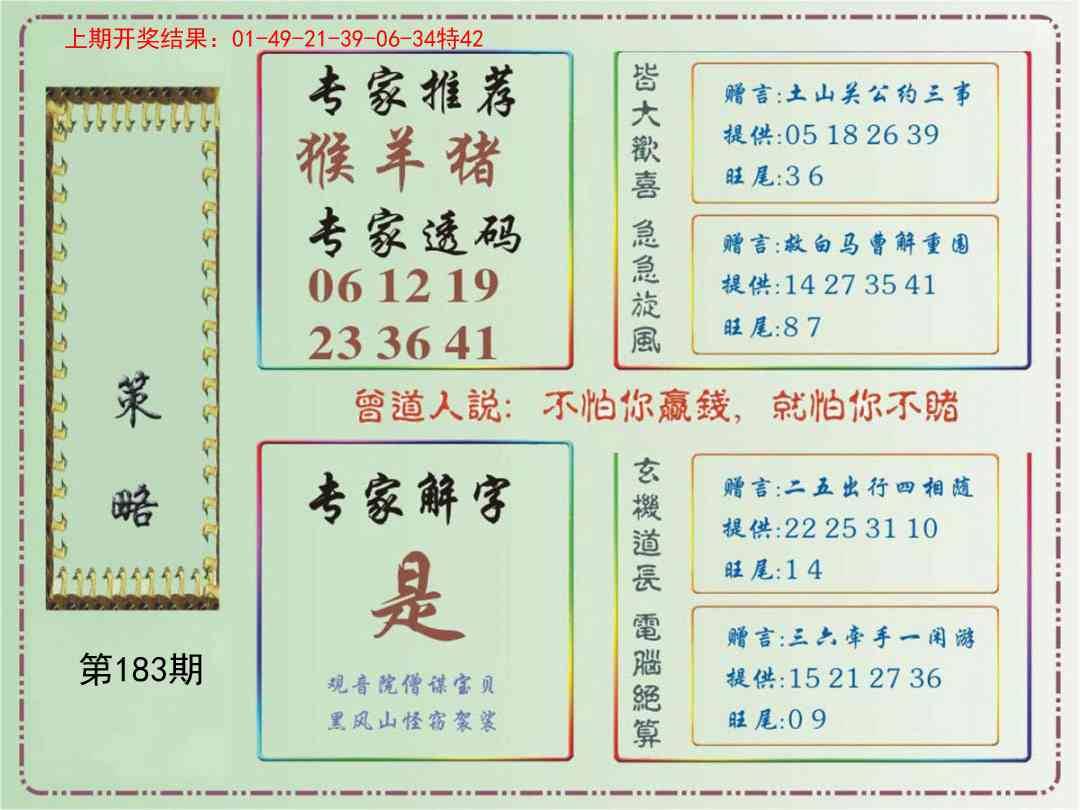 上期开奖结果：01-49-21-39-06-34特42
策略
第183期
专家推荐
猴羊猪
专家透码
06 12 19
23 36 41
皆大歡喜
赠言:土山关公约三事
提供:05 18 26 39
旺尾:3 6
急急旋風
赠言:救白马曹解重围
提供:14 27 35 41
旺尾:8 7
曾道人説：不怕你贏錢，就怕你不賭
专家解字
是
观音院僧谋宝贝
黑风山怪窃袈裟
玄機道長
赠言:二五出行四相随
提供:22 25 31 10
旺尾:1 4
電腦絕算
赠言:三六牵手一闲游
提供:15 21 27 36
旺尾:0 9